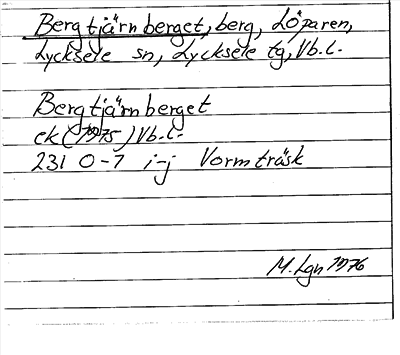 Bergtjärnberget, berg, Löparen,
Lycksele sn, Lycksele tg, Vb.l.
Bergtjärnberget
ek (1975) Vb.l.
231 0-7 i-j Vormträsk
M. Lgn 1976